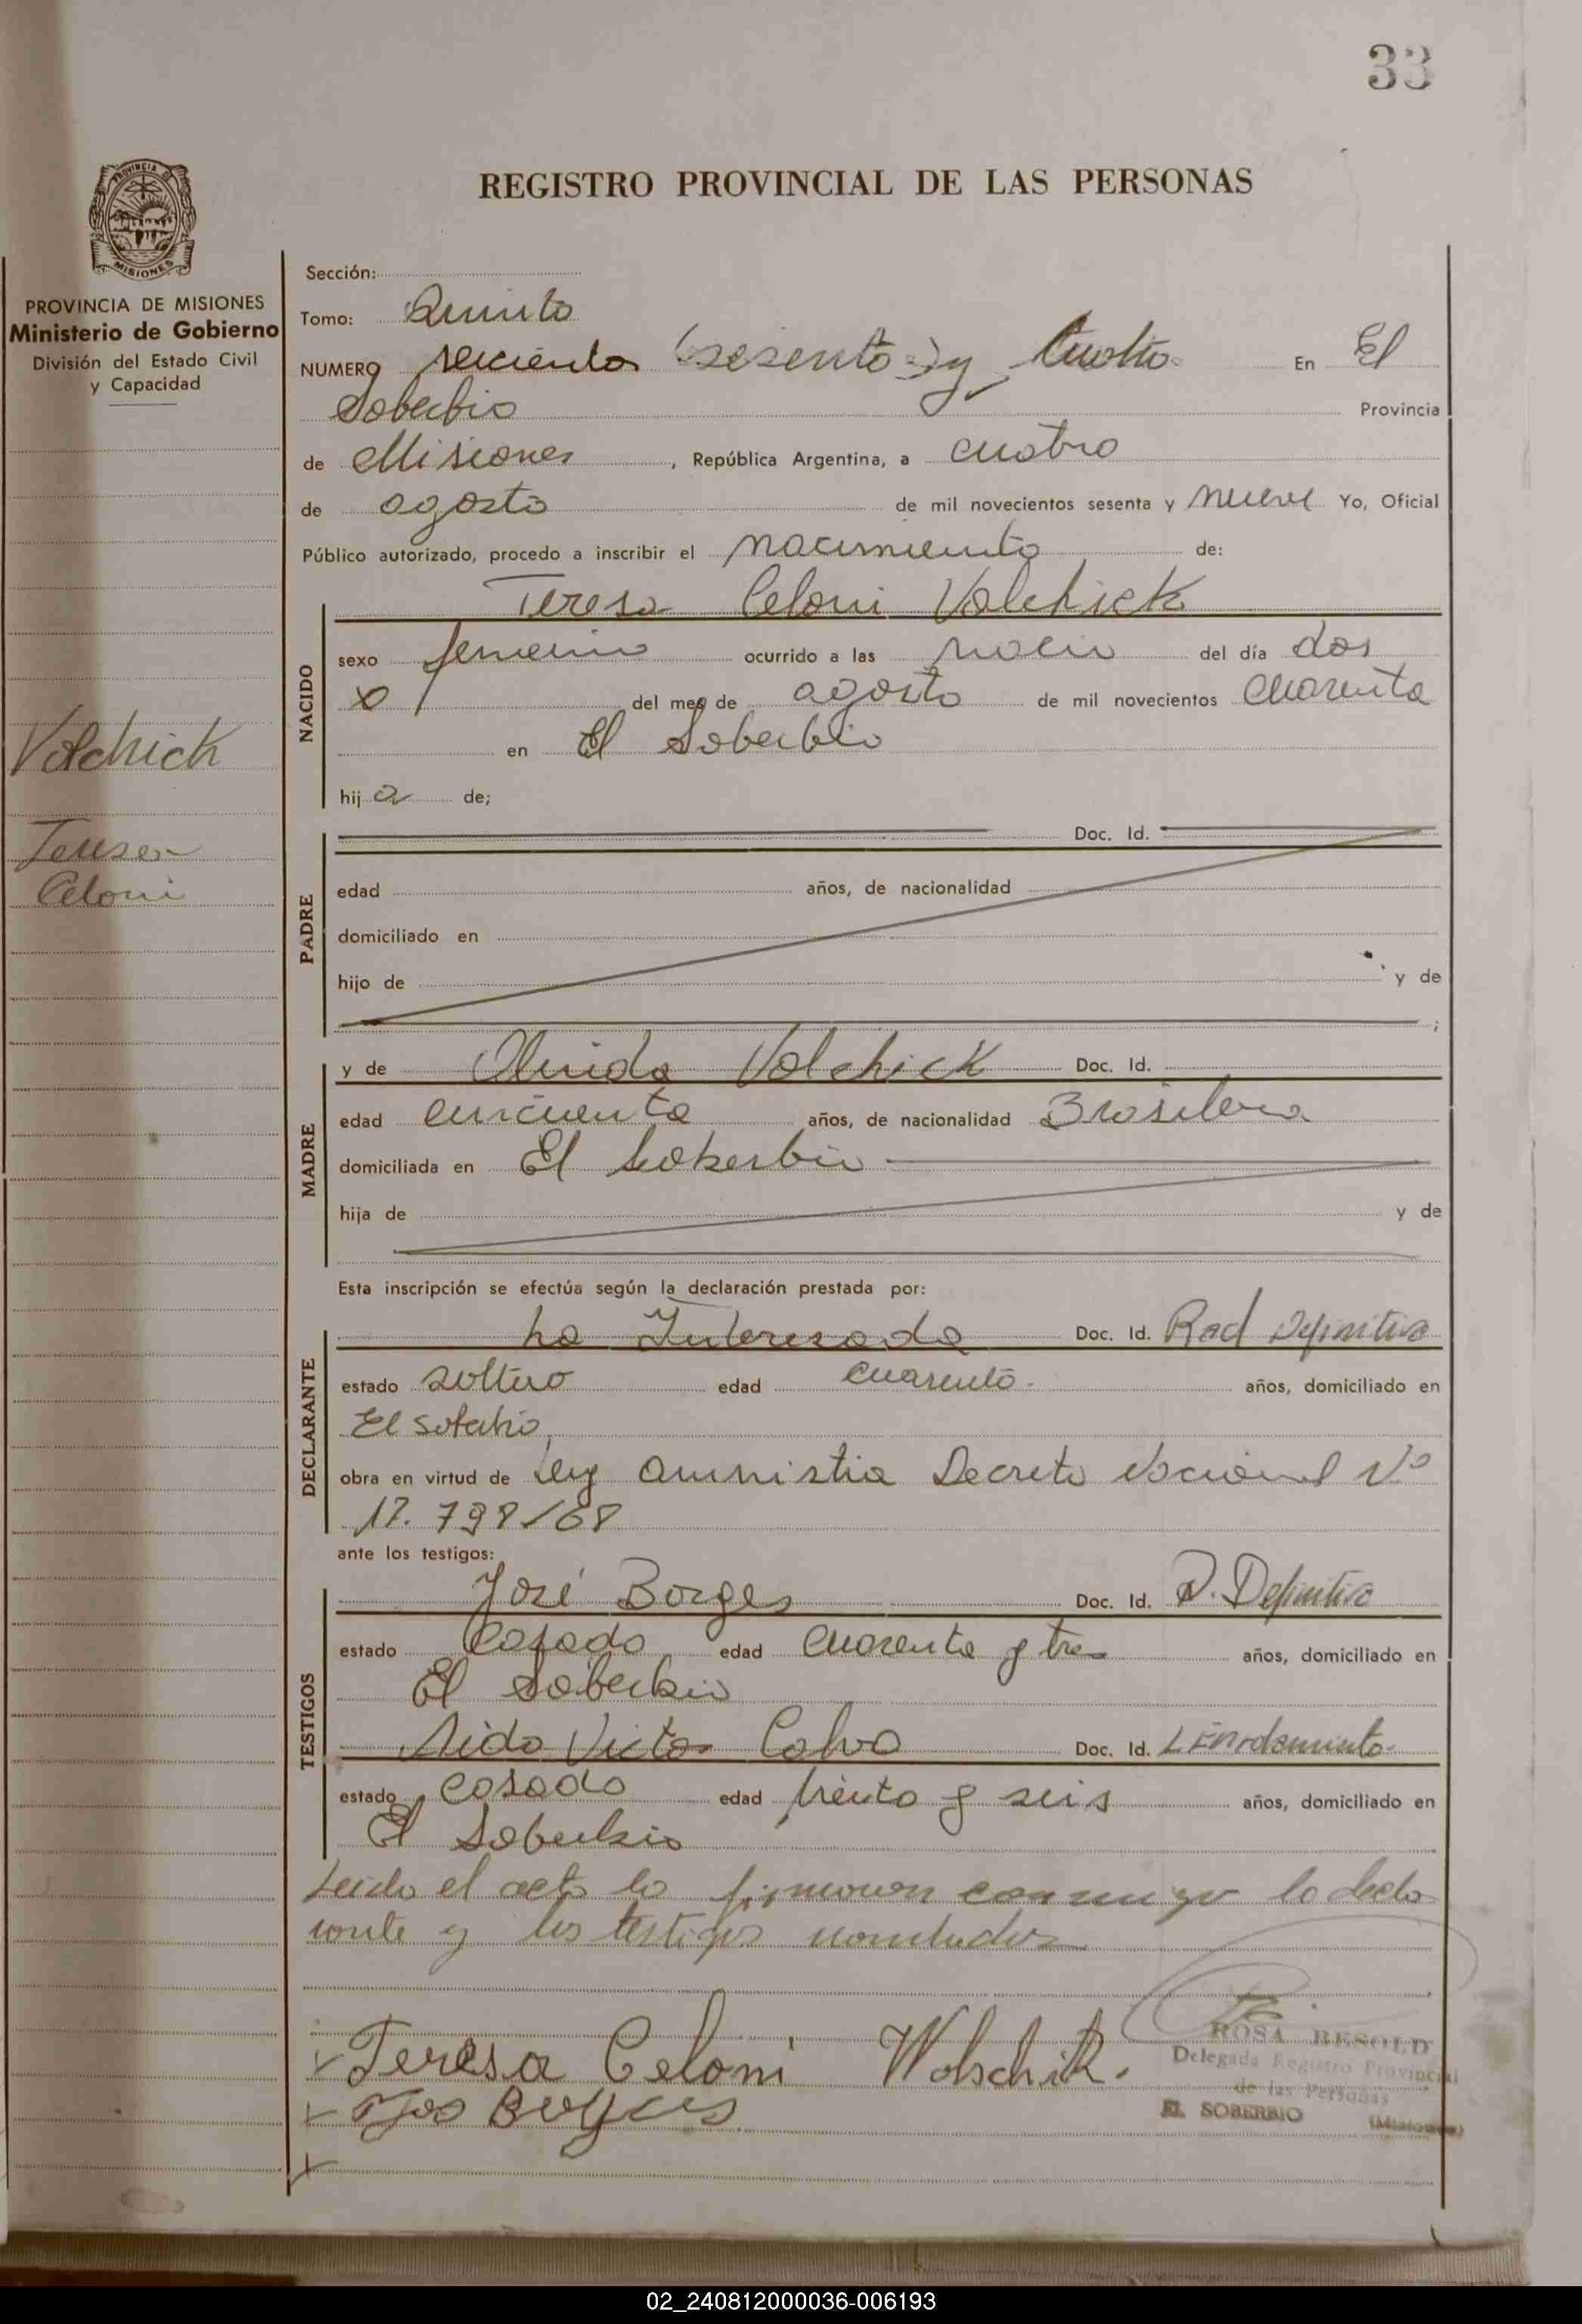 33
REGISTRO PROVINCIAL DE LAS PERSONAS
PROVINCIA DE
MISIONES
PROVINCIA DE MISIONES
Ministerio de Gobierno
División del Estado Civil
y Capacidad
Volchick
Teresa
Celoni
Sección:
Tomo: Quinto
NUMERO seiciento (sesenta) y Cuatro En El
Soberbio Provincia
de Misiones, República Argentina, a cuatro
de agosto de mil novecientos sesenta y nueve Yo, Oficial
Público autorizado, procedo a inscribir el nacimiento de:
Teresa Celoni Volchick
NACIDO
sexo femenino ocurrido a las del día dos
del mes de agosto de mil novecientos cuarenta
en El Soberbio
hija de;
PADRE
Doc. Id.
edad años, de nacionalidad
domiciliado en
hijo de y de
;
MADRE
y de Olivida Volchick Doc. Id.
edad cincuenta años, de nacionalidad Brasilera
domiciliada en El Soberbio
hija de y de
Esta inscripción se efectúa según la declaración prestada por:
DECLARANTE
La Interesada Doc. Id. Rad Definitiva
estado soltero edad cuarenta años, domiciliado en
El Soberbio
obra en virtud de Ley Amnistia Decreto Nacional Nº
17.798/68
ante los testigos:
TESTIGOS
José Borges Doc. Id. R. Definitiva
estado Casado edad Cuarenta y tres años, domiciliado en
El Soberbio
Aido Victor Calvo Doc. Id. L Enrolamiento
estado Casado edad treinta y seis años, domiciliado en
El Soberbio
Leido el acta la firmaron conmigo la decla
rante y los testigos nombrados
x Teresa Celoni Wolschik.
x Borges
x
ROSA BESOLD
Delegada Registro Provincial
de las Personas
EL SOBERBIO (Misiones)
02_240812000036-006193